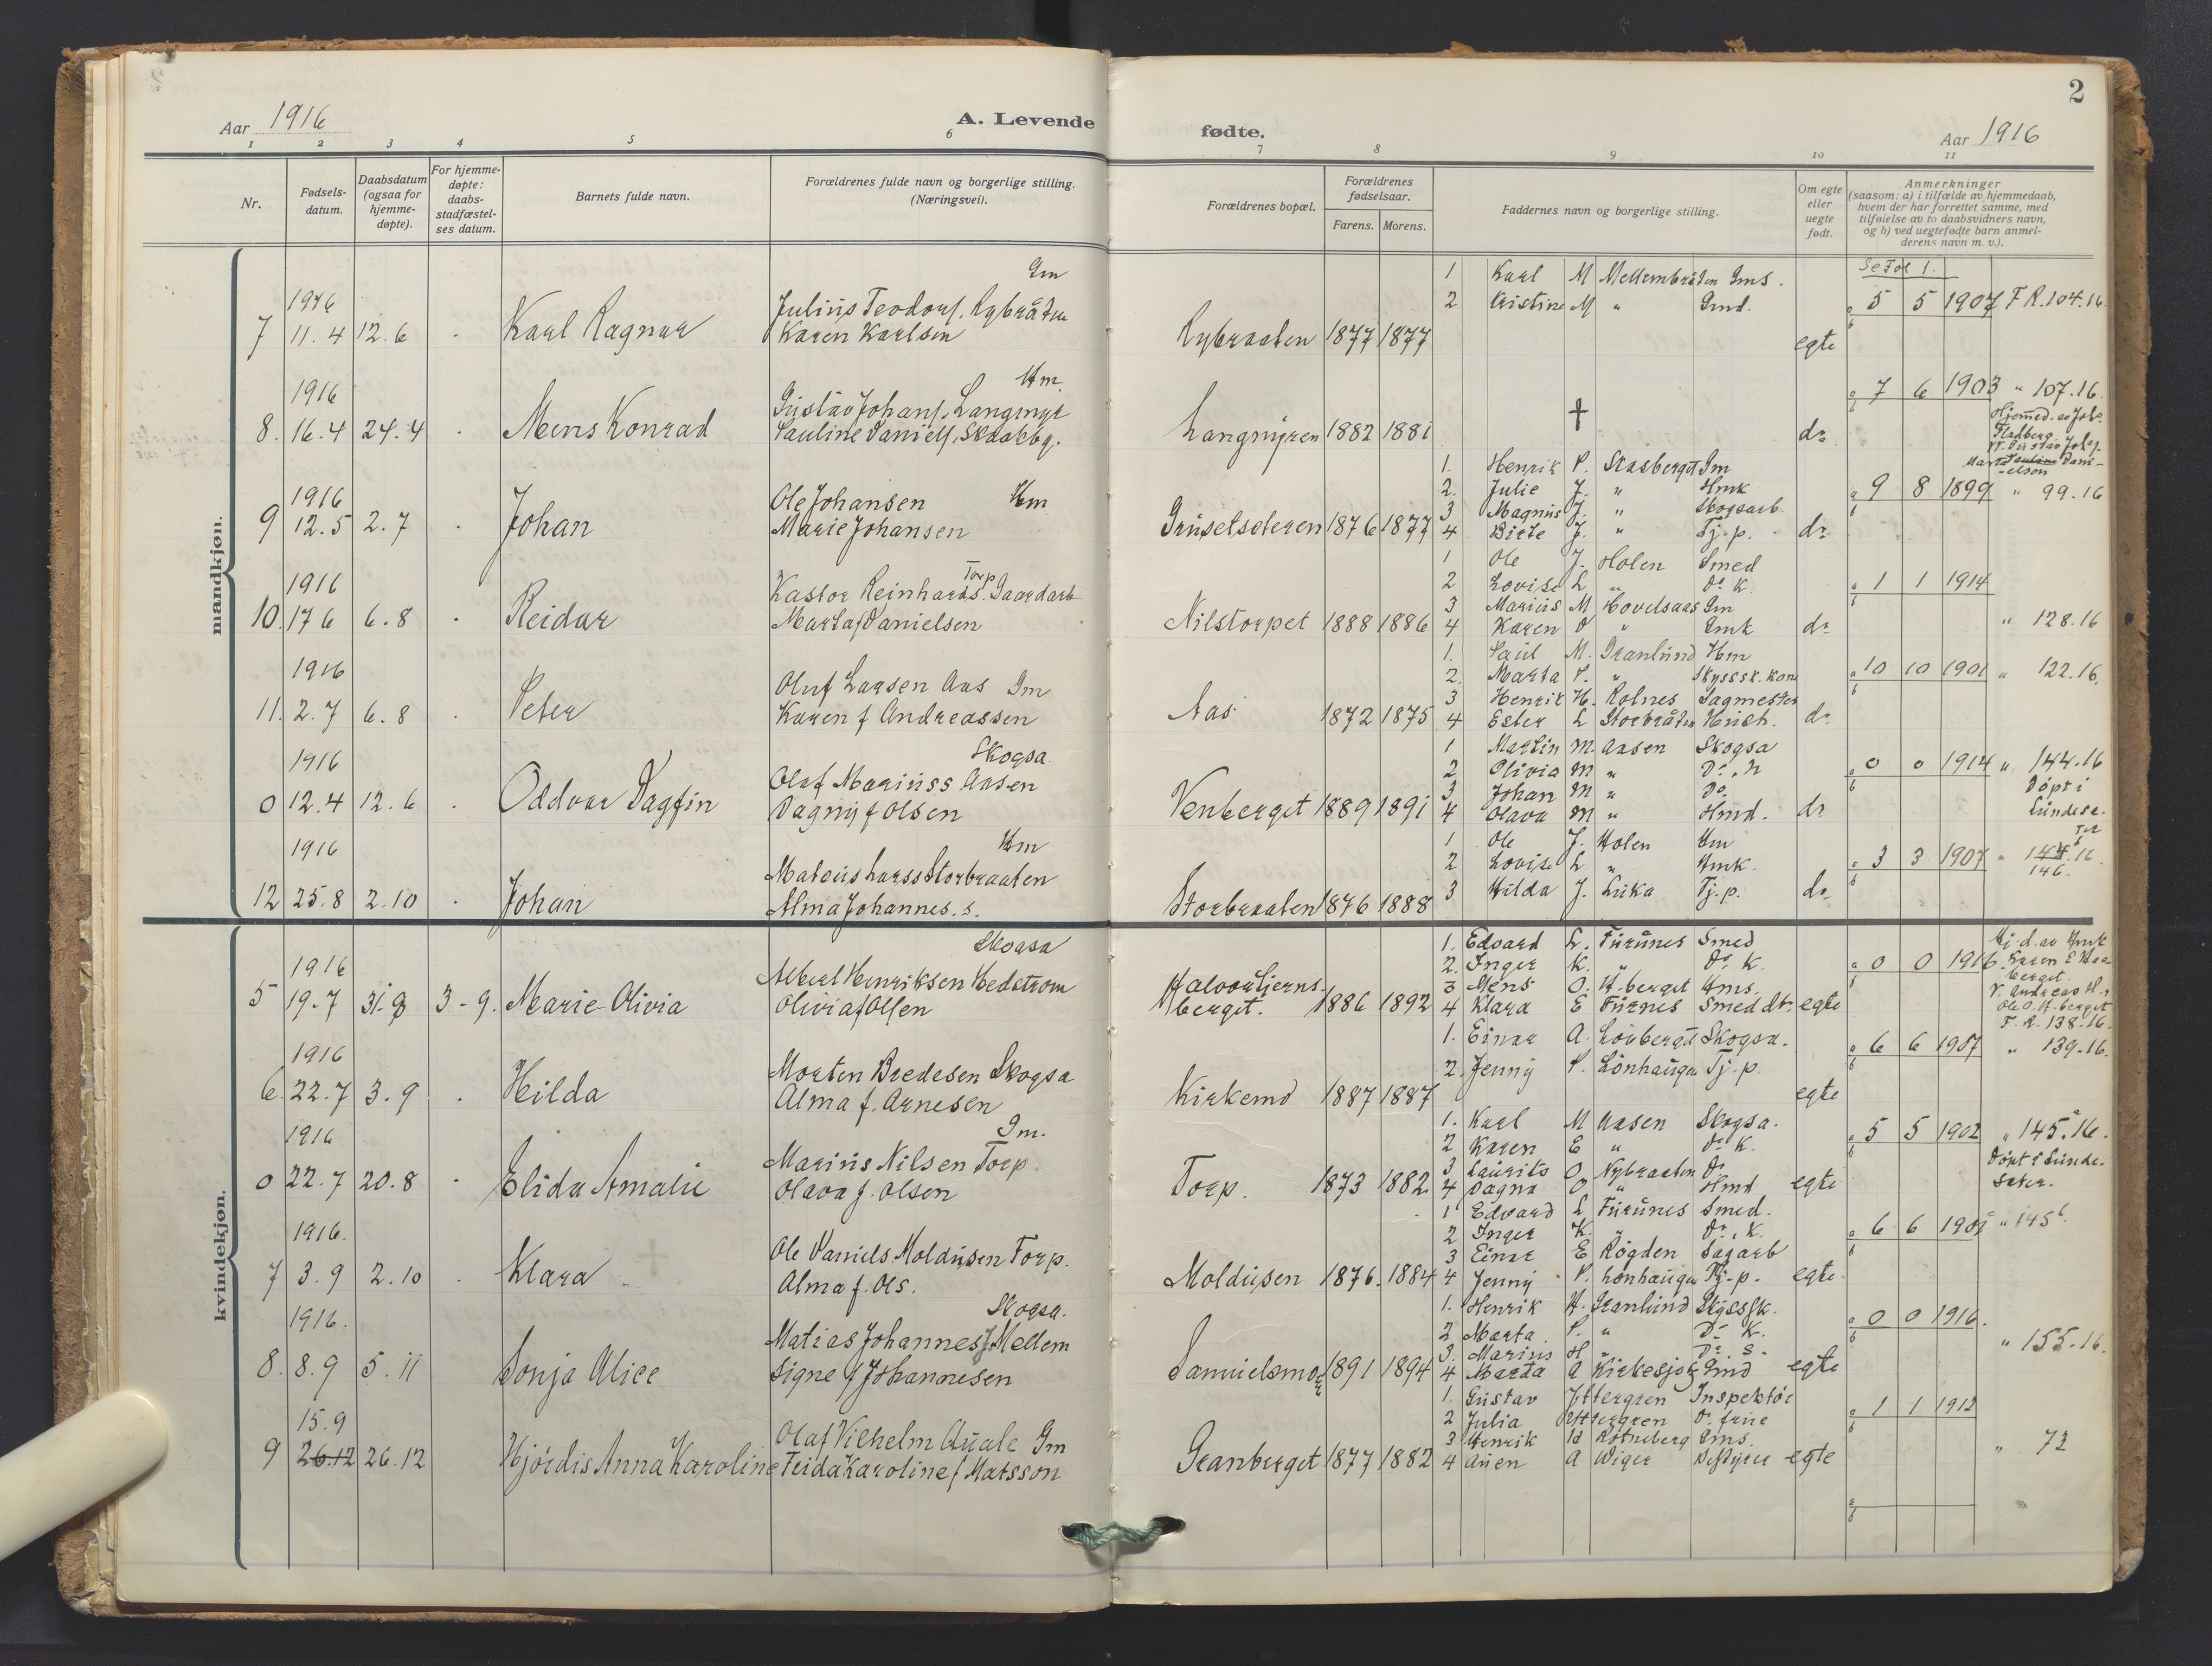 2
Aar 1916
A. Levende
fødte.
Aar 1916
1 2 3 4 5 6 7 8 9 10 11
Nr.
Fødsels-
datum.
Daabsdatum
(ogsaa for
hjemme-
døpte).
For hjemme-
døpte:
daabs-
stadfæstel-
ses datum.
Barnets fulde navn.
Forældrenes fulde navn og borgerlige stilling.
(Næringsvei).
Forældrenes bopæl.
Forældrenes
fødselsaar.
Farens. Morens.
Faddernes navn og borgerlige stilling.
Om egte
eller
uegte
født.
Anmerkninger
(saasom: a) i tilfælde av hjemmedaab,
hvem der har forrettet samme, med
tilføielse av to daabsvidners navn,
og b) ved uegtefødte barn anmel-
derens navn m. v.).
mandkjøn.
Gm
1 Karl M Mellembråten Gms.
Se Fol 1.
1916
Julius Teodorf. Rybråten
2 Kristine M " Gmd.
a 5 5 1907 F R. 104.16
b
7 11.4 12.6 - Karl Ragnar
Karen Karlsen
Rybraaten 1877 1877
egte
1916
Hm.
a 7 6 1903 " 107.16.
b
Gustav Johanf. Langmyr
8. 16.4 24.4 - Mens Konrad
Pauline Danielf. Skaakbg.
Langmyren 1882 1881
†
do
Hjemmed. av Johs.
Fladberg
V. Gustav Johsf.
Marta Pauline Dani-
-elsen
1. Henrik P. Skasberget Gm
1916
Ole Johansen Hm
2. Julie J. " Hmk
a 9 8 1899 " 99.16
b
3 Magnus J. " Skogsarb.
9 12.5 2.7 - Johan
Marie Johansen
Grusetseteren 1876 1877
4 Birte J. " Tj.p.
do
1916
Torp.
1 Ole J. Holen Smed
Kastor Reinhards. Gaardarb
2 Lovise L " Do K.
a 1 1 1914
b
3 Marius M Hovelsaas Gm
10. 17 6 6.8 - Reidar
Marta f Danielsen
Nilstorpet 1888 1886
4 Karen O " Gmk
do
" 128.16
1916
1. Paul M. Granlund Hm
Oluf Larsen Aas Gm
2. Marta P. " Skyssk. kone
a 10 10 1901 " 122.16.
b
3 Henrik H. Rotnes Sagmester
11. 2.7 6.8 - Peter
Karen f Andreassen
Aas 1872 1875
4 Ester L Storbråten
do
1916
Skogsa.
1 Martin M. Aasen Skogsa
Olaf Mariuss Aasen
2 Olivia M " Do.
a 0 0 1914 " 144.16
b
3 Johan M " Do
Døpt i
Lundese-
ter
0 12.4 12.6 - Oddvar Dagfin
Dagny f Olsen
Venberget 1889 1891
4 Olava M " Hmd.
do
1916
Hm
1 Ole J. Holen Hm
Mateus Larss Storbraaten
2 Lovise L " Hmk.
a 3 3 1907 " 144.16
b
146.
12 25.8 2.10 - Johan
Alma Johannes.s.
Storbraaten 1876 1888
3 Hilda J. Luka Tj.p.
do
kvindekjøn.
Skogsa
1. Edvard L. Furunes Smed
Hj.d. av Hmk
1916
Albert Henriksen Hedstrøm
2. Inger K. " Do. K.
a 0 0 1916
b
Karen E
berget.
3 Mens O. H.berget Hms.
5 19.7 31.8 3-9. Marie Olivia
Olivia f Olsen
Halvortjerns-
berget. 1886 1892
4 Klara E Furnes Smed dt.
egte
V. Andreas H.
Ole O. H.berget
F. R. 138.16.
1916
1. Einar A. Løvberget Skogsa.
a 6 6 1907 " 139.16.
b
Morten Bredesen Skogsa
2. Jenny P. Lønhaugen Tj.p.
6. 22.7 3.9 - Hilda
Alma f. Arnesen
Kirkemo 1887 1887
egte
1916
Gm.
1. Karl M Aasen Skogsa.
Marius Nilsen Torp.
2 Karen E " do K.
a 5 5 1902 " 145.a16.
b
3 Laurits O Nybraaten Do
Døpt i Lunde-
seter.
0 22.7 20.8 - Elida Amalie
Olava f. Olsen
Torp. 1873 1882
4 Dagna O " Hmd
egte
1916.
1 Edvard L Furunes Smed.
Ole Daniels Moldusen Torp.
2 Inger K. " Do, K.
a 6 6 1905 " 145b.
b
3 Einar E Røgden Sagarb
7 3.9 2.10 - Klara
Alma f. Ols.
Moldusen 1876. 1884
4 Jenny P. Lønhaugen Tj-p.
egte
1916.
Skogsa.
1. Henrik H. Granlund Skyssk.
Matias Johannesf Mellem
2 Marta P. " Do K.
a 0 0 1916.
b
3. Marius H " Do S.
" 155.16.
8. 8.9 5.11 Sonja Alice
Signe f Johannesen
Samuelsmoen 1891 1894
4 Marta A Kirkesjø Gmd
egte
15.9
1. Gustav Yttergren Inspektør
Olaf Vilhelm Quale Gm
2 Julia Yttergren Do. frue
a 1 1 1912
b
3 Henrik H Rotneberg Gms.
" 72
9 26.12 26.12 Hjørdis Anna Karoline
Frida Karoline f Matsson
Granberget 1877 1882
4 A Wiger Bestyrer
egte
a
b